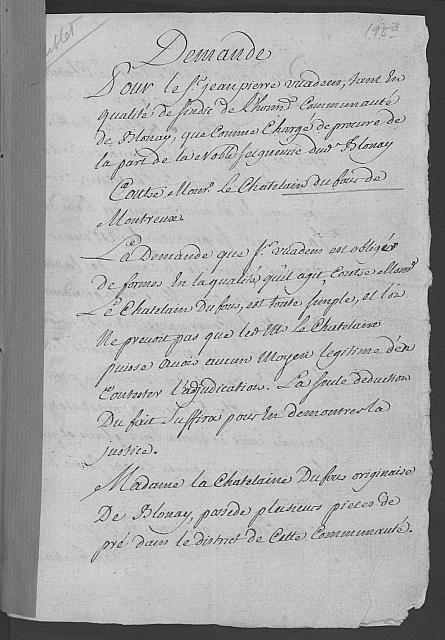 198a
Demande
Pour le Sr. jeanpierre viaden, tant En
qualité de Sindic de L'honn. Communauté
de Blonay, que Comme Chargé de procure de
la part de la Noble Seigneurie dud. Blonay
Contre Monsr. Le Chatelain dufour de
Montreux
La Demande que Sr. viaden est obligé
de former En la qualité qu'il agit Contre Monsr.
Le Chatelain Dufour, est toute simple, et l'on
Ne prevoit pas que led. M. Le Chatelain
puisse avoir aucun Moyen legitime d'en
Contester l'adjudication. La seule deduction
Du fait Suffira pour En demontrer la
justice.
Madame la Chatelaine Dufour originaire
De Blonay, possede plusieurs pieces de
pré dans le district de Cette Communauté.